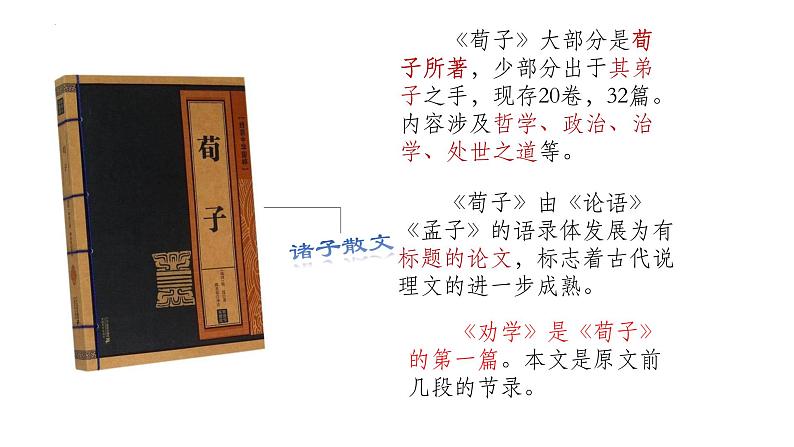 荀子
诸子散文
《荀子》大部分是荀
子所著，少部分出于其弟
子之手，现存20卷，32篇。
内容涉及哲学、政治、治
学、处世之道等。
《荀子》由《论语》
《孟子》的语录体发展为有
标题的论文，标志着古代说
理文的进一步成熟。
《劝学》是《荀子》
的第一篇。本文是原文前
几段的节录。